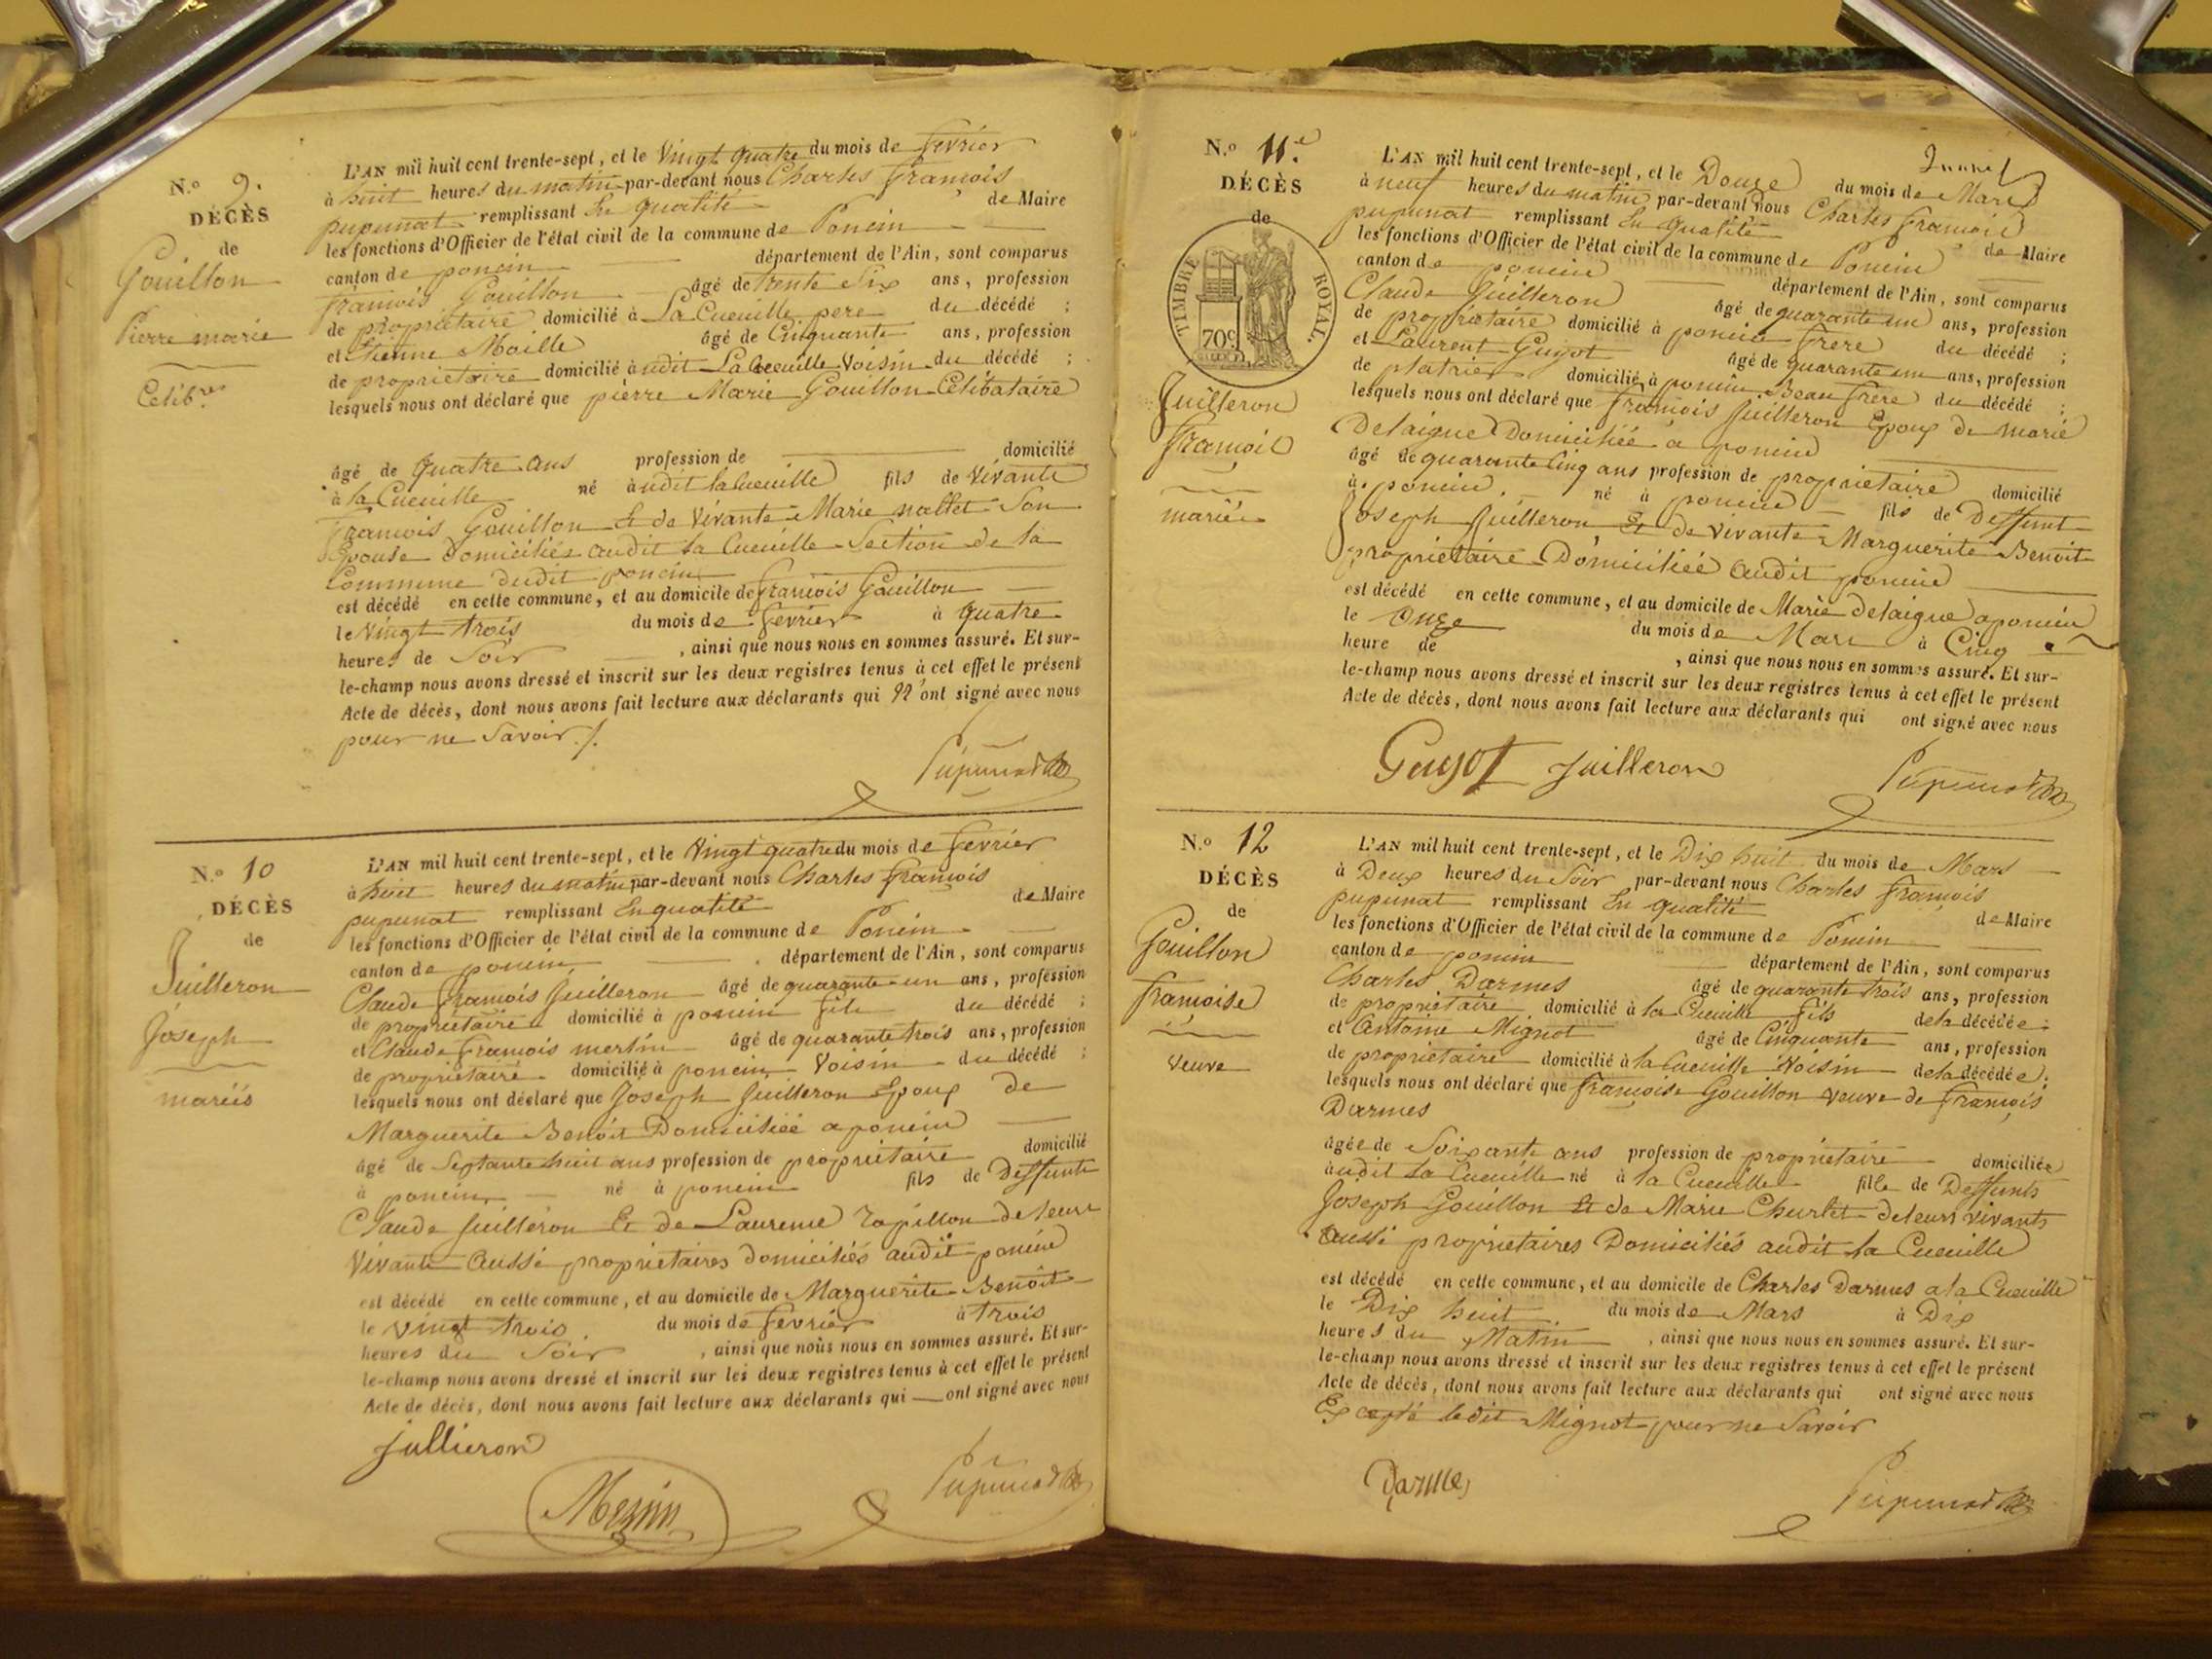 N.o 9.
DÉCÈS
de
Gouillon
Pierre marie
Célib.re
L'AN mil huit cent trente-sept, et le Vingt quatre du mois de février
à huit heures du matin par-devant nous Charles François
pupunat remplissant En qualité de Maire
les fonctions d'Officier de l'état civil de la commune de Poncin
canton de poncin département de l'Ain, sont comparus
François Gouillon âgé de trente Six ans, profession
de propriétaire domicilié à La Cueuille pere du décédé ;
et Etienne Maille âgé de Cinquante ans, profession
de propriétaire domicilié audit La Cueuille Voisin du décédé ;
lesquels nous ont déclaré que pierre Marie Gouillon Célibataire
âgé de quatre ans profession de domicilié
à la Cueuille né audit la Cueuille fils de Vivante
François Gouillon Et de Vivante Marie nallet Son
Epouse domiciliés audit la Cueuille Section de la
Commune dudit poncin
est décédé en cette commune, et au domicile de François Gouillon
le Vingt trois du mois de février à quatre
heures de Soir , ainsi que nous nous en sommes assuré. Et sur-
le-champ nous avons dressé et inscrit sur les deux registres tenus à cet effet le présent
Acte de décès, dont nous avons fait lecture aux déclarants qui n'ont signé avec nous
pour ne Savoir ./.
Pupunat
N.o 10
DÉCÈS
de
Juilleron
Joseph
mariés
L'AN mil huit cent trente-sept, et le Vingt quatre du mois de février
à huit heures du matin par-devant nous Charles François
pupunat remplissant En qualité de Maire
les fonctions d'Officier de l'état civil de la commune de Poncin
canton de poncin département de l'Ain, sont comparus
Claude François Juilleron âgé de quarante un ans, profession
de propriétaire domicilié à poncin fils du décédé ;
et Claude François merlin âgé de quarante trois ans, profession
de propriétaire domicilié à poncin Voisin du décédé ;
lesquels nous ont déclaré que Joseph Juilleron Epoux de
Marguerite Benoit Domiciliée a poncin
âgé de Septante huit ans profession de propriétaire domicilié
à poncin né à poncin fils de Deffunts
Claude Juilleron Et de Laurence rapillon de leur
Vivante Aussi propriétaires domiciliés audit poncin
est décédé en cette commune, et au domicile de Marguerite Benoit
le Vingt trois du mois de février à trois
heures du Soir , ainsi que nous nous en sommes assuré. Et sur-
le-champ nous avons dressé et inscrit sur les deux registres tenus à cet effet le présent
Acte de décès, dont nous avons fait lecture aux déclarants qui ont signé avec nous
Jullieron
Pupunat
N.o 11.e
DÉCÈS
de
TIMBRE ROYAL.
70c
Juilleron
François
mariée
L'AN mil huit cent trente-sept, et le Douze du mois de Mars
à neuf heures du matin par-devant nous Charles François
pupunat remplissant En qualité de Maire
les fonctions d'Officier de l'état civil de la commune de Poncin
canton de poncin département de l'Ain, sont comparus
Claude Juilleron âgé de quarante un ans, profession
de propriétaire domicilié à poncin frere du décédé ;
et Laurent Guyot âgé de quarante un ans, profession
de platrier domicilié à poncin Beau frere du décédé ;
lesquels nous ont déclaré que François Juilleron Epoux de marie
Delaigue Domiciliée a poncin
âgé de quarante Cinq ans profession de propriétaire domicilié
à poncin né à poncin fils de Deffunt
Joseph Juilleron Et de Vivante Marguerite Benoit
propriétaire Domiciliée audit poncin
est décédé en cette commune, et au domicile de Marie Delaigue a poncin
le Onze du mois de Mars à Cinq
heure de , ainsi que nous nous en sommes assuré. Et sur-
le-champ nous avons dressé et inscrit sur les deux registres tenus à cet effet le présent
Acte de décès, dont nous avons fait lecture aux déclarants qui ont signé avec nous
Guyot Juilleron
Pupunat
N.o 12
DÉCÈS
de
Gouillon
françoise
Veuve
L'AN mil huit cent trente-sept, et le Dix huit du mois de Mars
à Deux heures du Soir par-devant nous Charles François
pupunat remplissant En qualité de Maire
les fonctions d'Officier de l'état civil de la commune de Poncin
canton de poncin département de l'Ain, sont comparus
Charles Darmes âgé de quarante trois ans, profession
de propriétaire domicilié à la Cueuille fils de la décédée ;
et Antoine Mignot âgé de Cinquante ans, profession
de propriétaire domicilié à la Cueuille Voisin de la décédée ;
lesquels nous ont déclaré que françoise Gouillon veuve de François
Darmes
âgée de Soixante ans profession de propriétaire domiciliée
audit la Cueuille né à la Cueuille fille de Deffunts
Joseph Gouillon Et de Marie Churlet de leurs vivants
aussi propriétaires Domiciliés audit la Cueuille
est décédé en cette commune, et au domicile de Charles Darmes a la Cueuille
le Dix huit du mois de Mars à Dix
heures du Matin , ainsi que nous nous en sommes assuré. Et sur-
le-champ nous avons dressé et inscrit sur les deux registres tenus à cet effet le présent
Acte de décès, dont nous avons fait lecture aux déclarants qui ont signé avec nous
Excepté ledit Mignot pour ne Savoir
Darmes
Pupunat